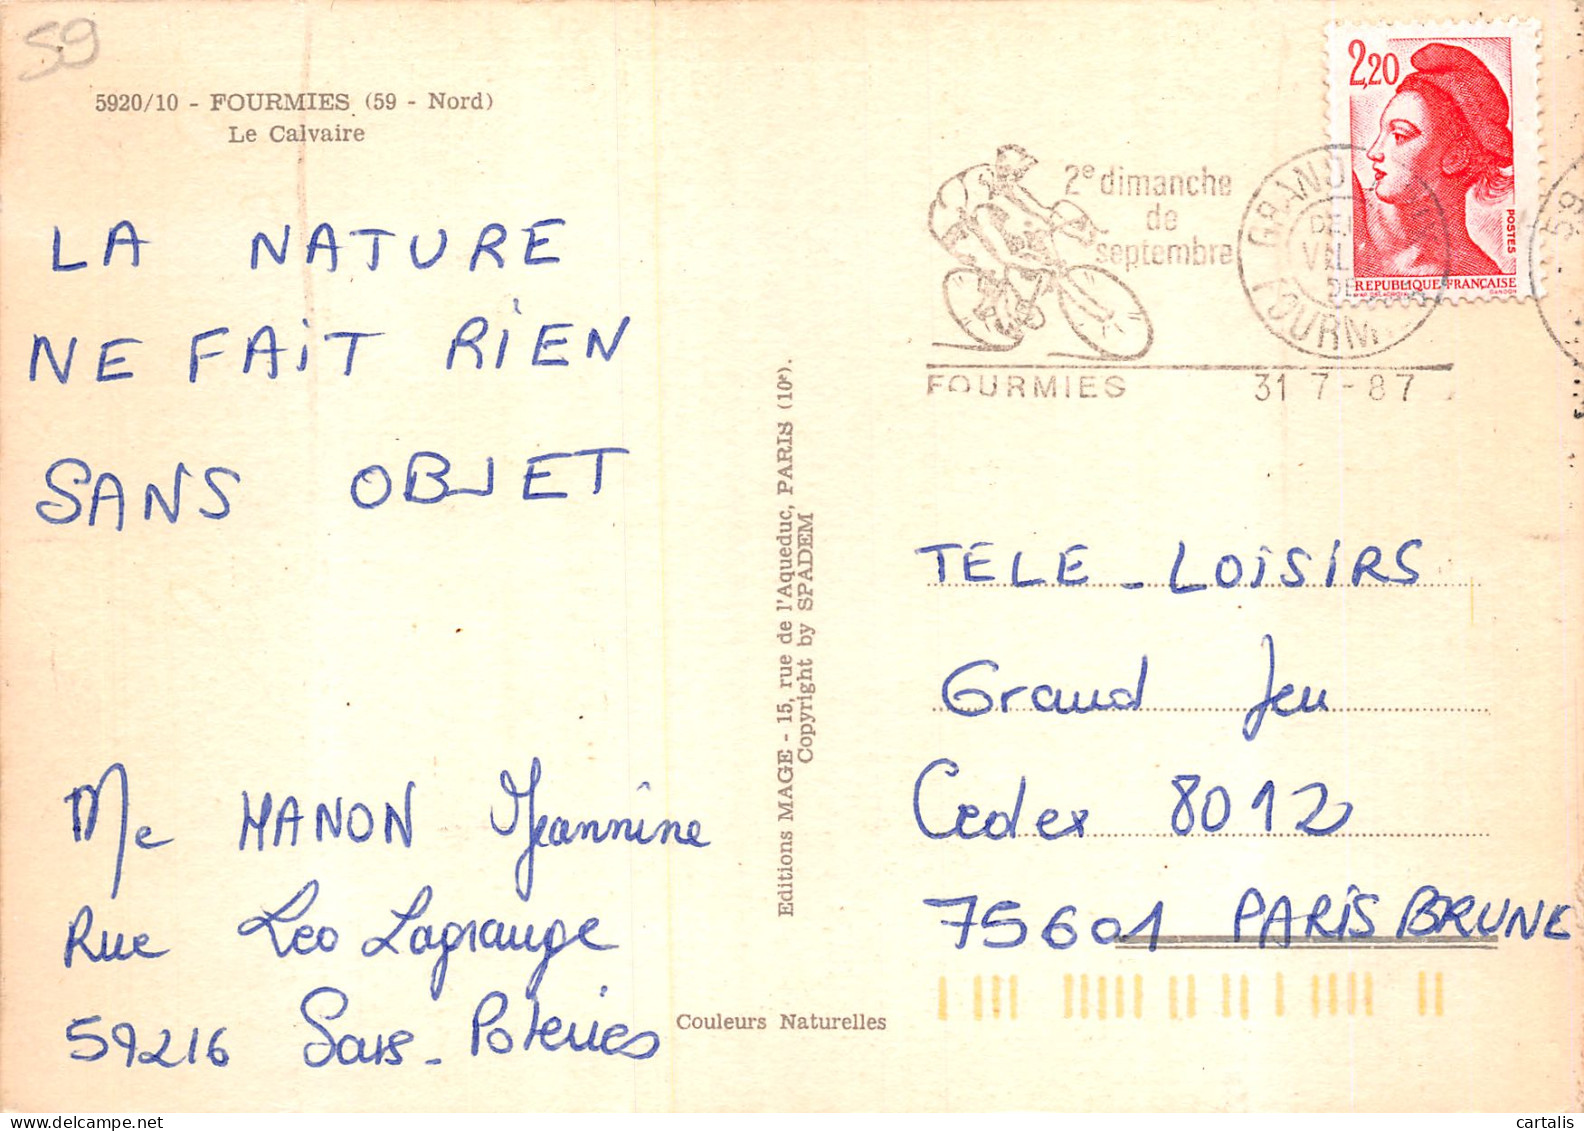 59
5920/10 - FOURMIES (59 - Nord)
Le Calvaire
LA NATURE
NE FAIT RIEN
SANS OBJET
Me MANON Jeannine
Rue Leo Lagrange
59216 Sars-Poteries
Editions MAGE - 15, rue de l'Aqueduc, PARIS (10e).
Copyright by SPADEM
Couleurs Naturelles
2e dimanche
de
septembre
FOURMIES 31 7-87
GRAND
FOURM
2,20
POSTES
REPUBLIQUE FRANÇAISE
GANDON
59
TELE-LOISIRS
Grand Jeu
Cedex 8012
75601 PARIS BRUNE
cartalis